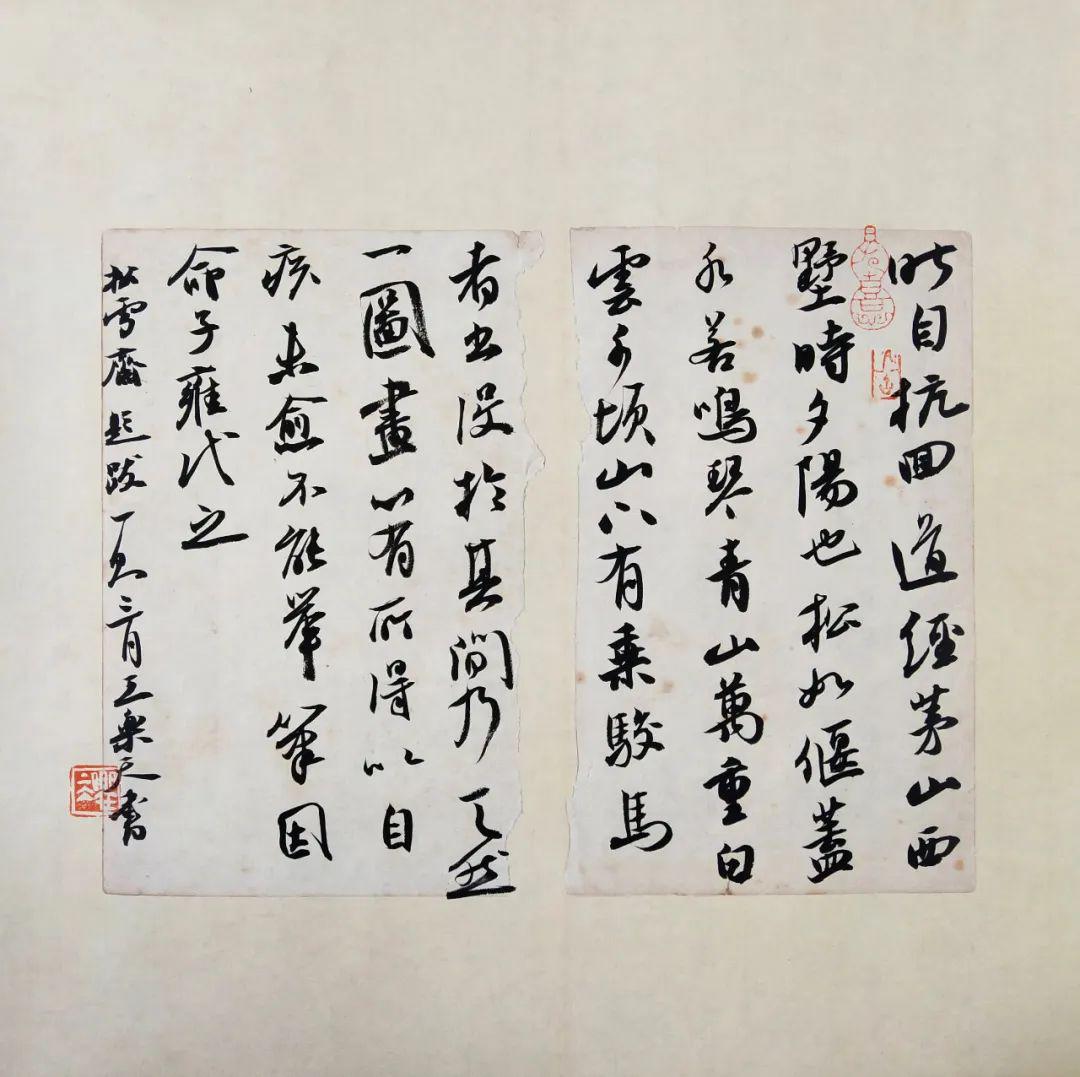 昨自杭回道經茅山西
墅時夕陽也松如偃蓋
水若鳴琴青山萬重白
雲千頃山下有乘駿馬
者出沒於其間乃天然
一圖畫心有所得以自
疾未愈不能舉筆因
命子雍代之
松雪齋題跋一則三月王樂天書